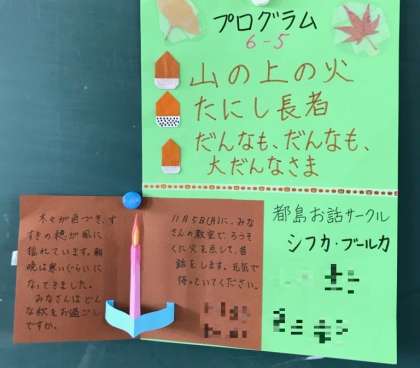 プログラム
6-5
山の上の火
たにし長者
だんなも、だんなも、
大だんなさま
木々が色づき、す
すきの穂が風に
揺れています。朝
晩は寒いぐらいに
なってきました。
みなさんはどん
な秋をお過ごし
ですか。
11月5日(月)に、みな
さんの教室で、ろうそ
くに火を点して、昔
話をします。元気で
待っていてください。
都島お話サークル
シフカ・ブールカ